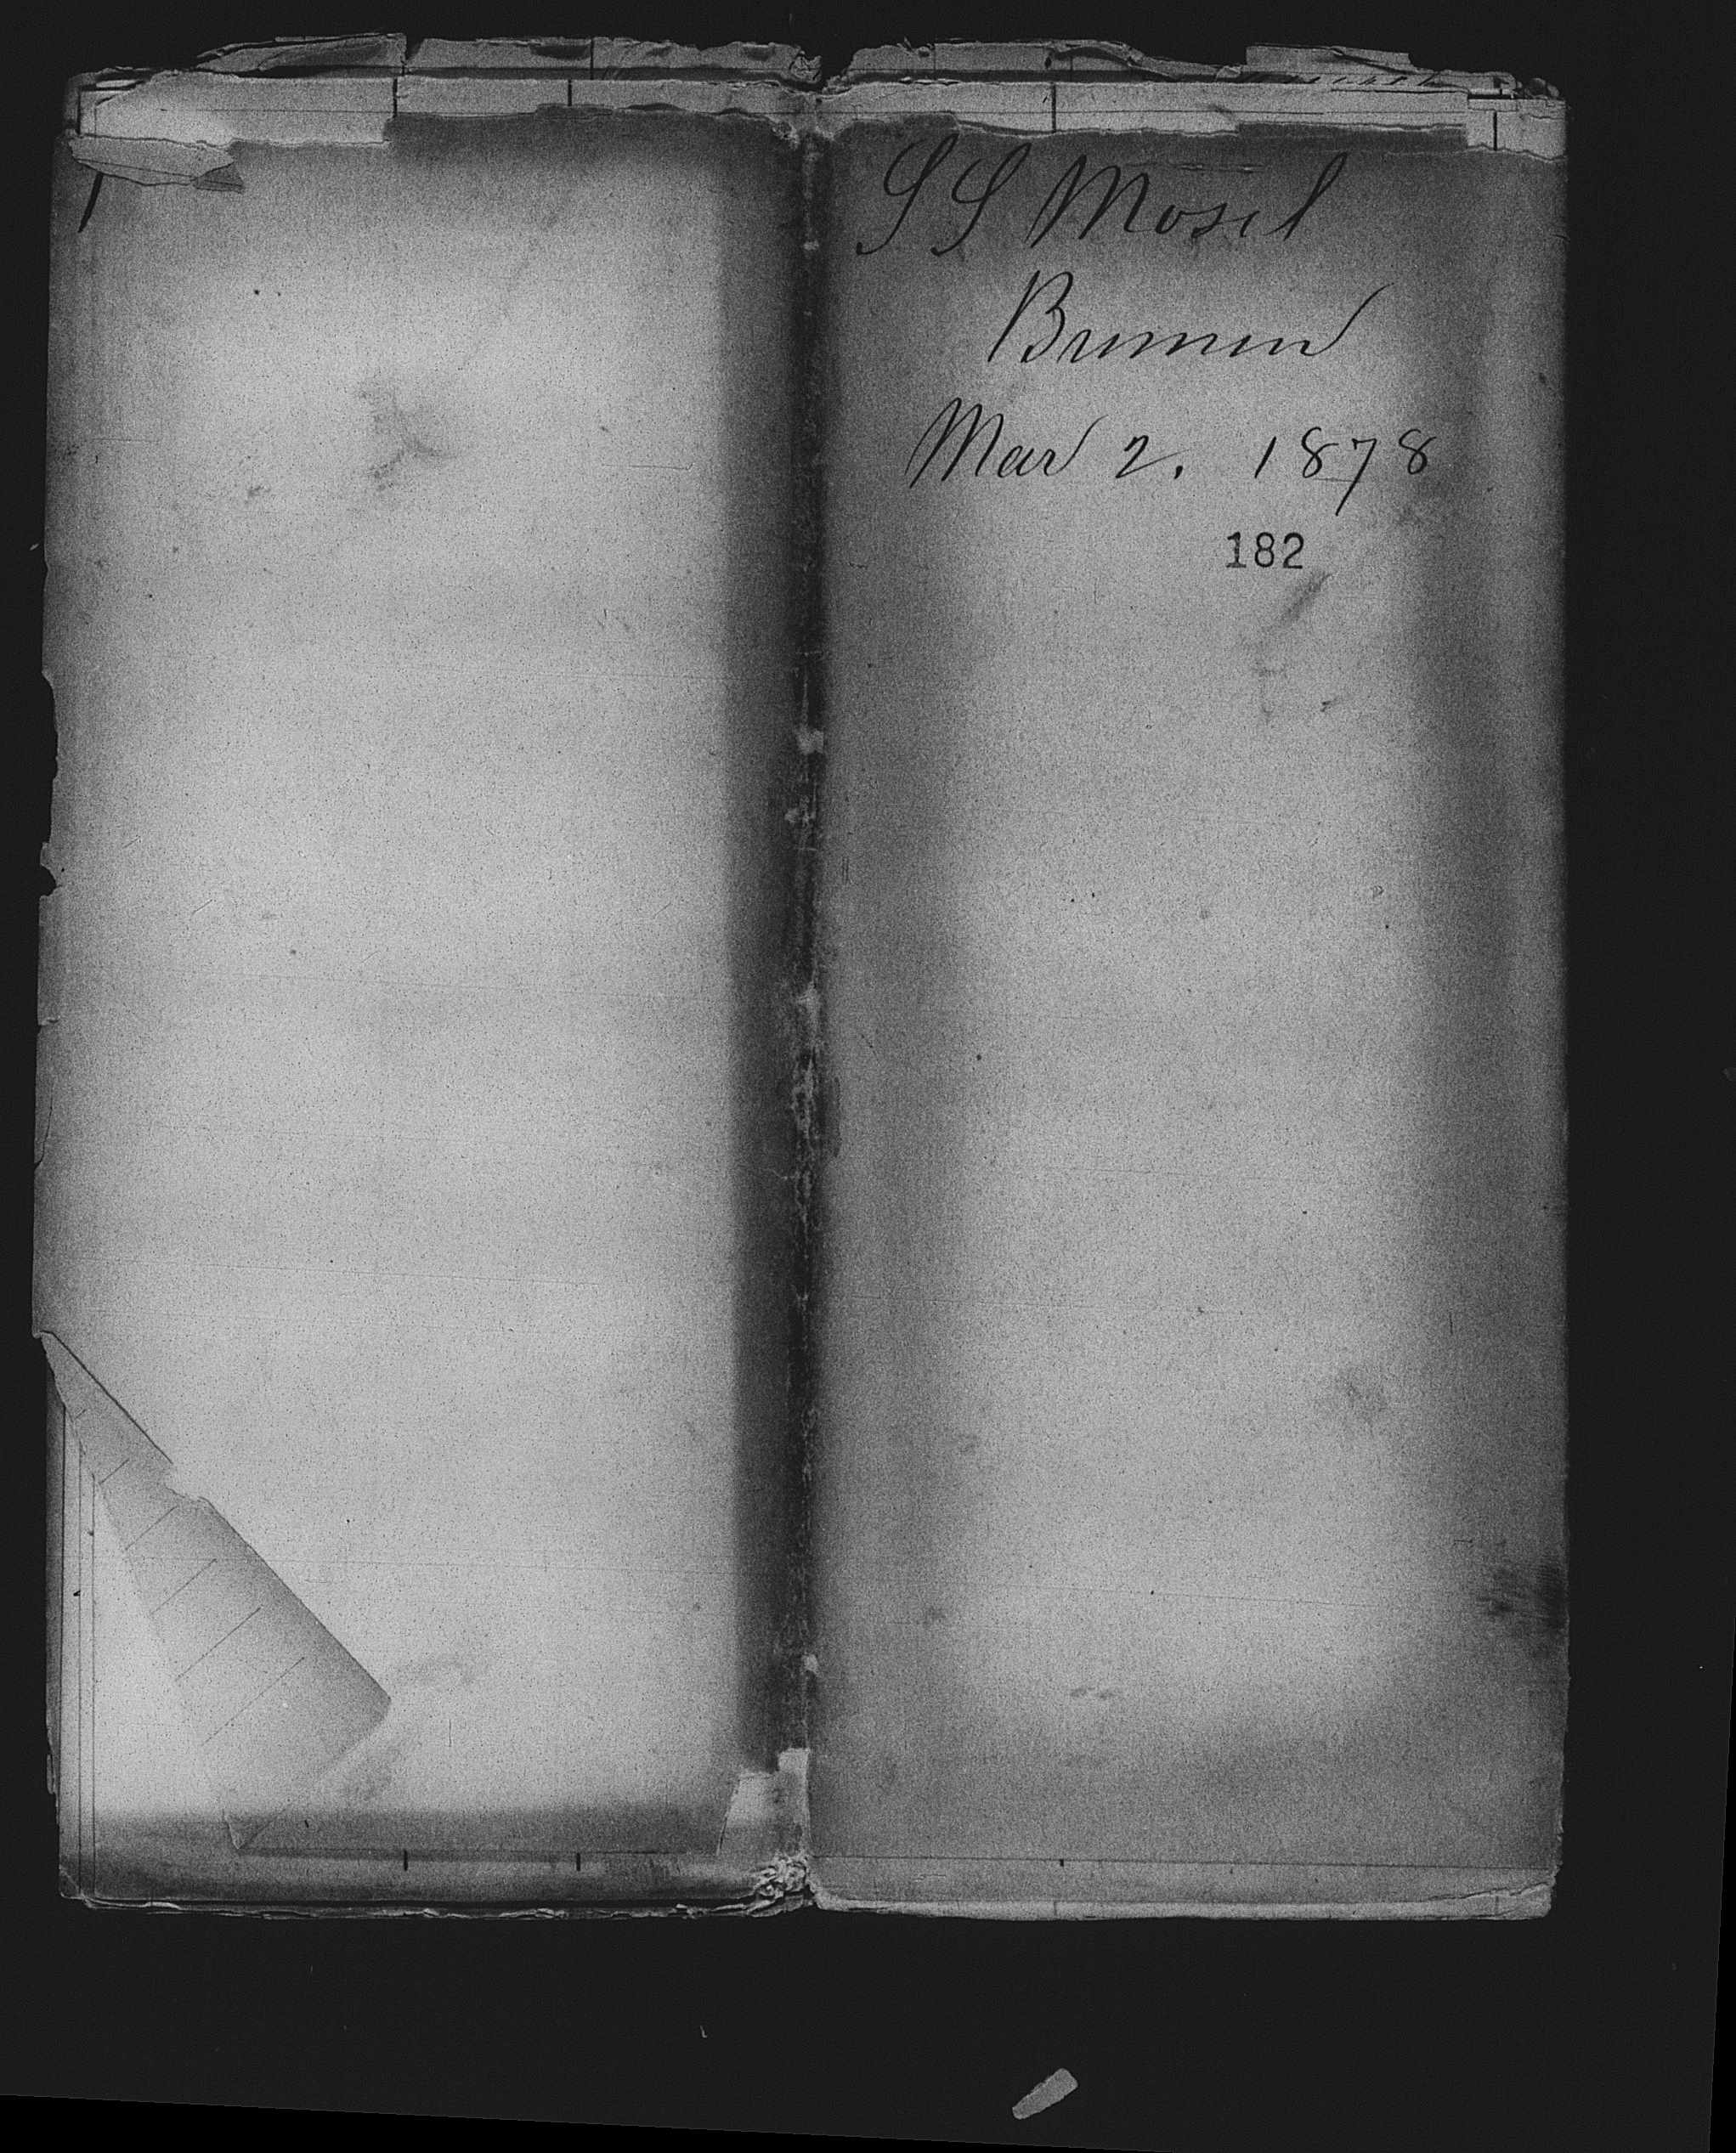 SS Mosel
Bremen
Mar 2. 1878
182